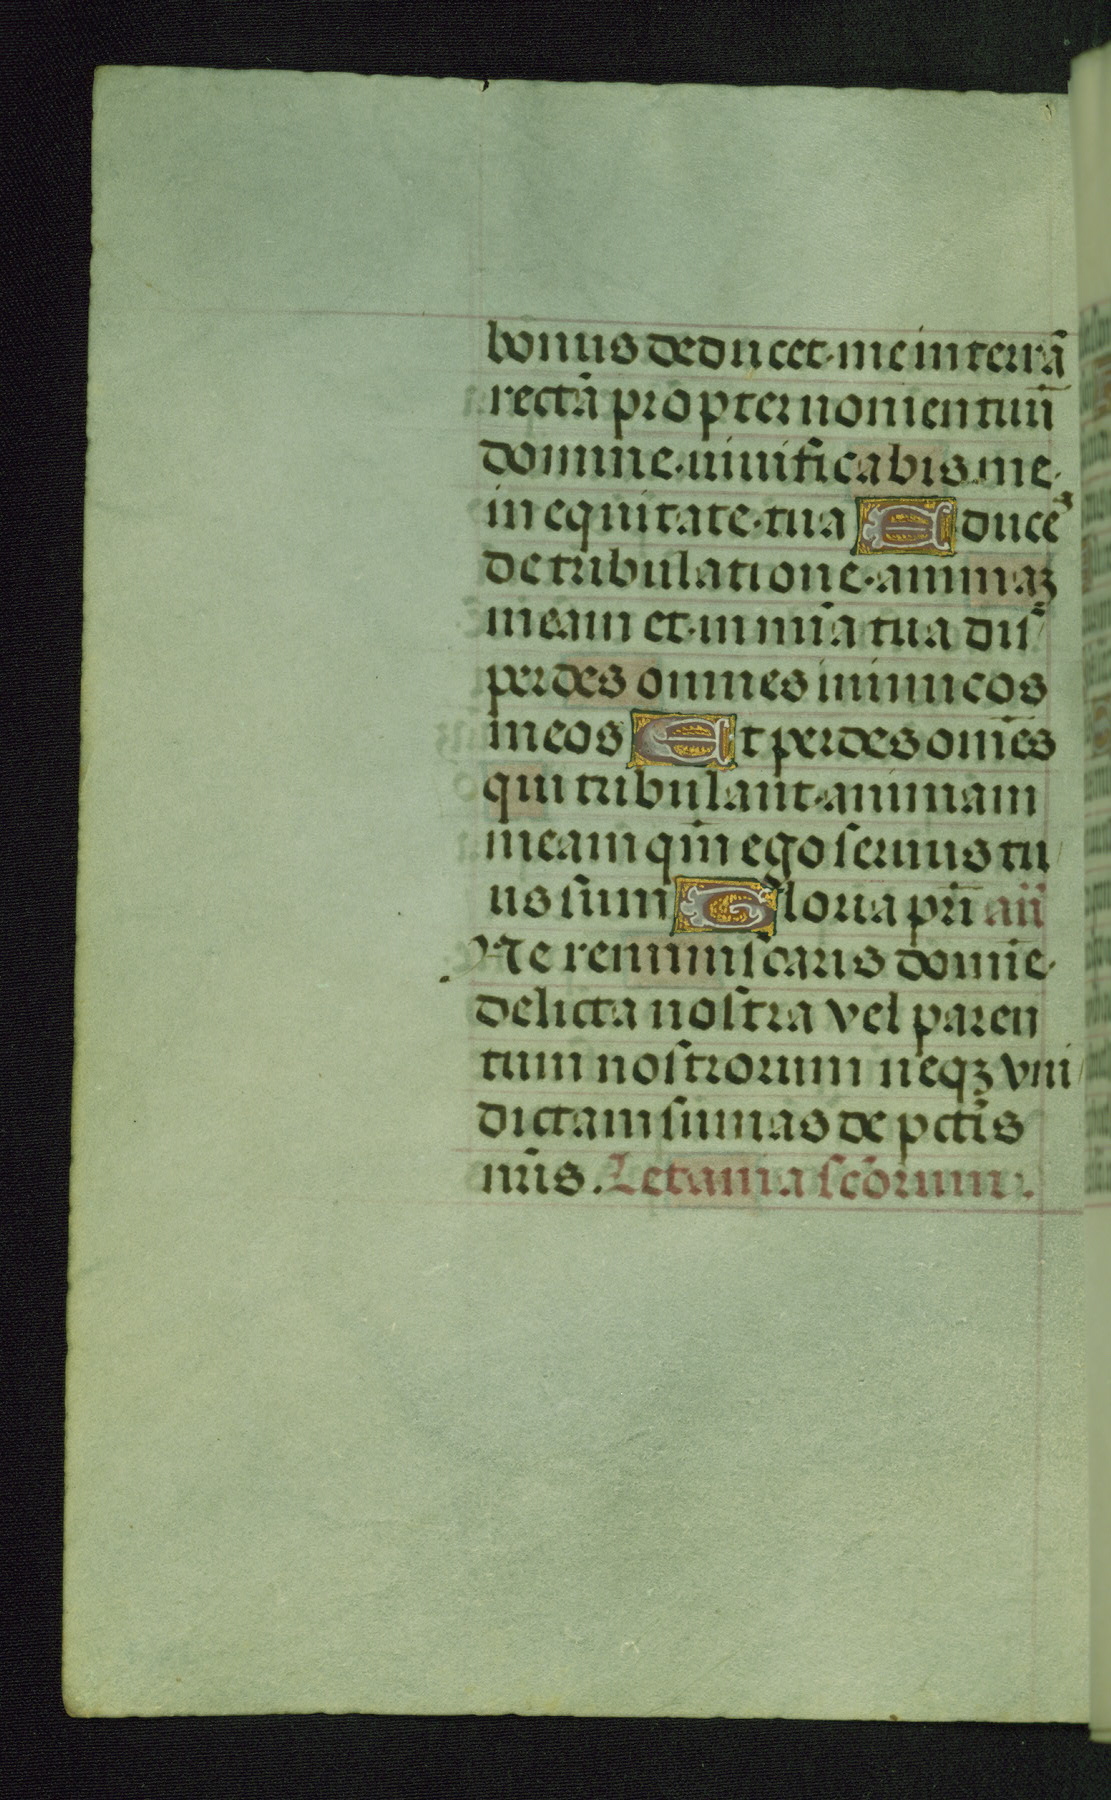 bonus deducet me in terrā
rectā propter nomen tuū
domine uiuificabis me
in equitate tua Educeˢ
de tribulatione animaʒ
meam et in mīa tua dis
perdes omnes inimicos
meos Et perdes om̄es
qui tribulant animam
meam qm̄ ego seruus tu
us sum Gloria pr̄i añ
Ne reminiscaris domīe
delicta nostra vel paren
tum nostrorum neqʒ vin
dictam sumas de pctīs
nr̄is. Letania sc̄orum.